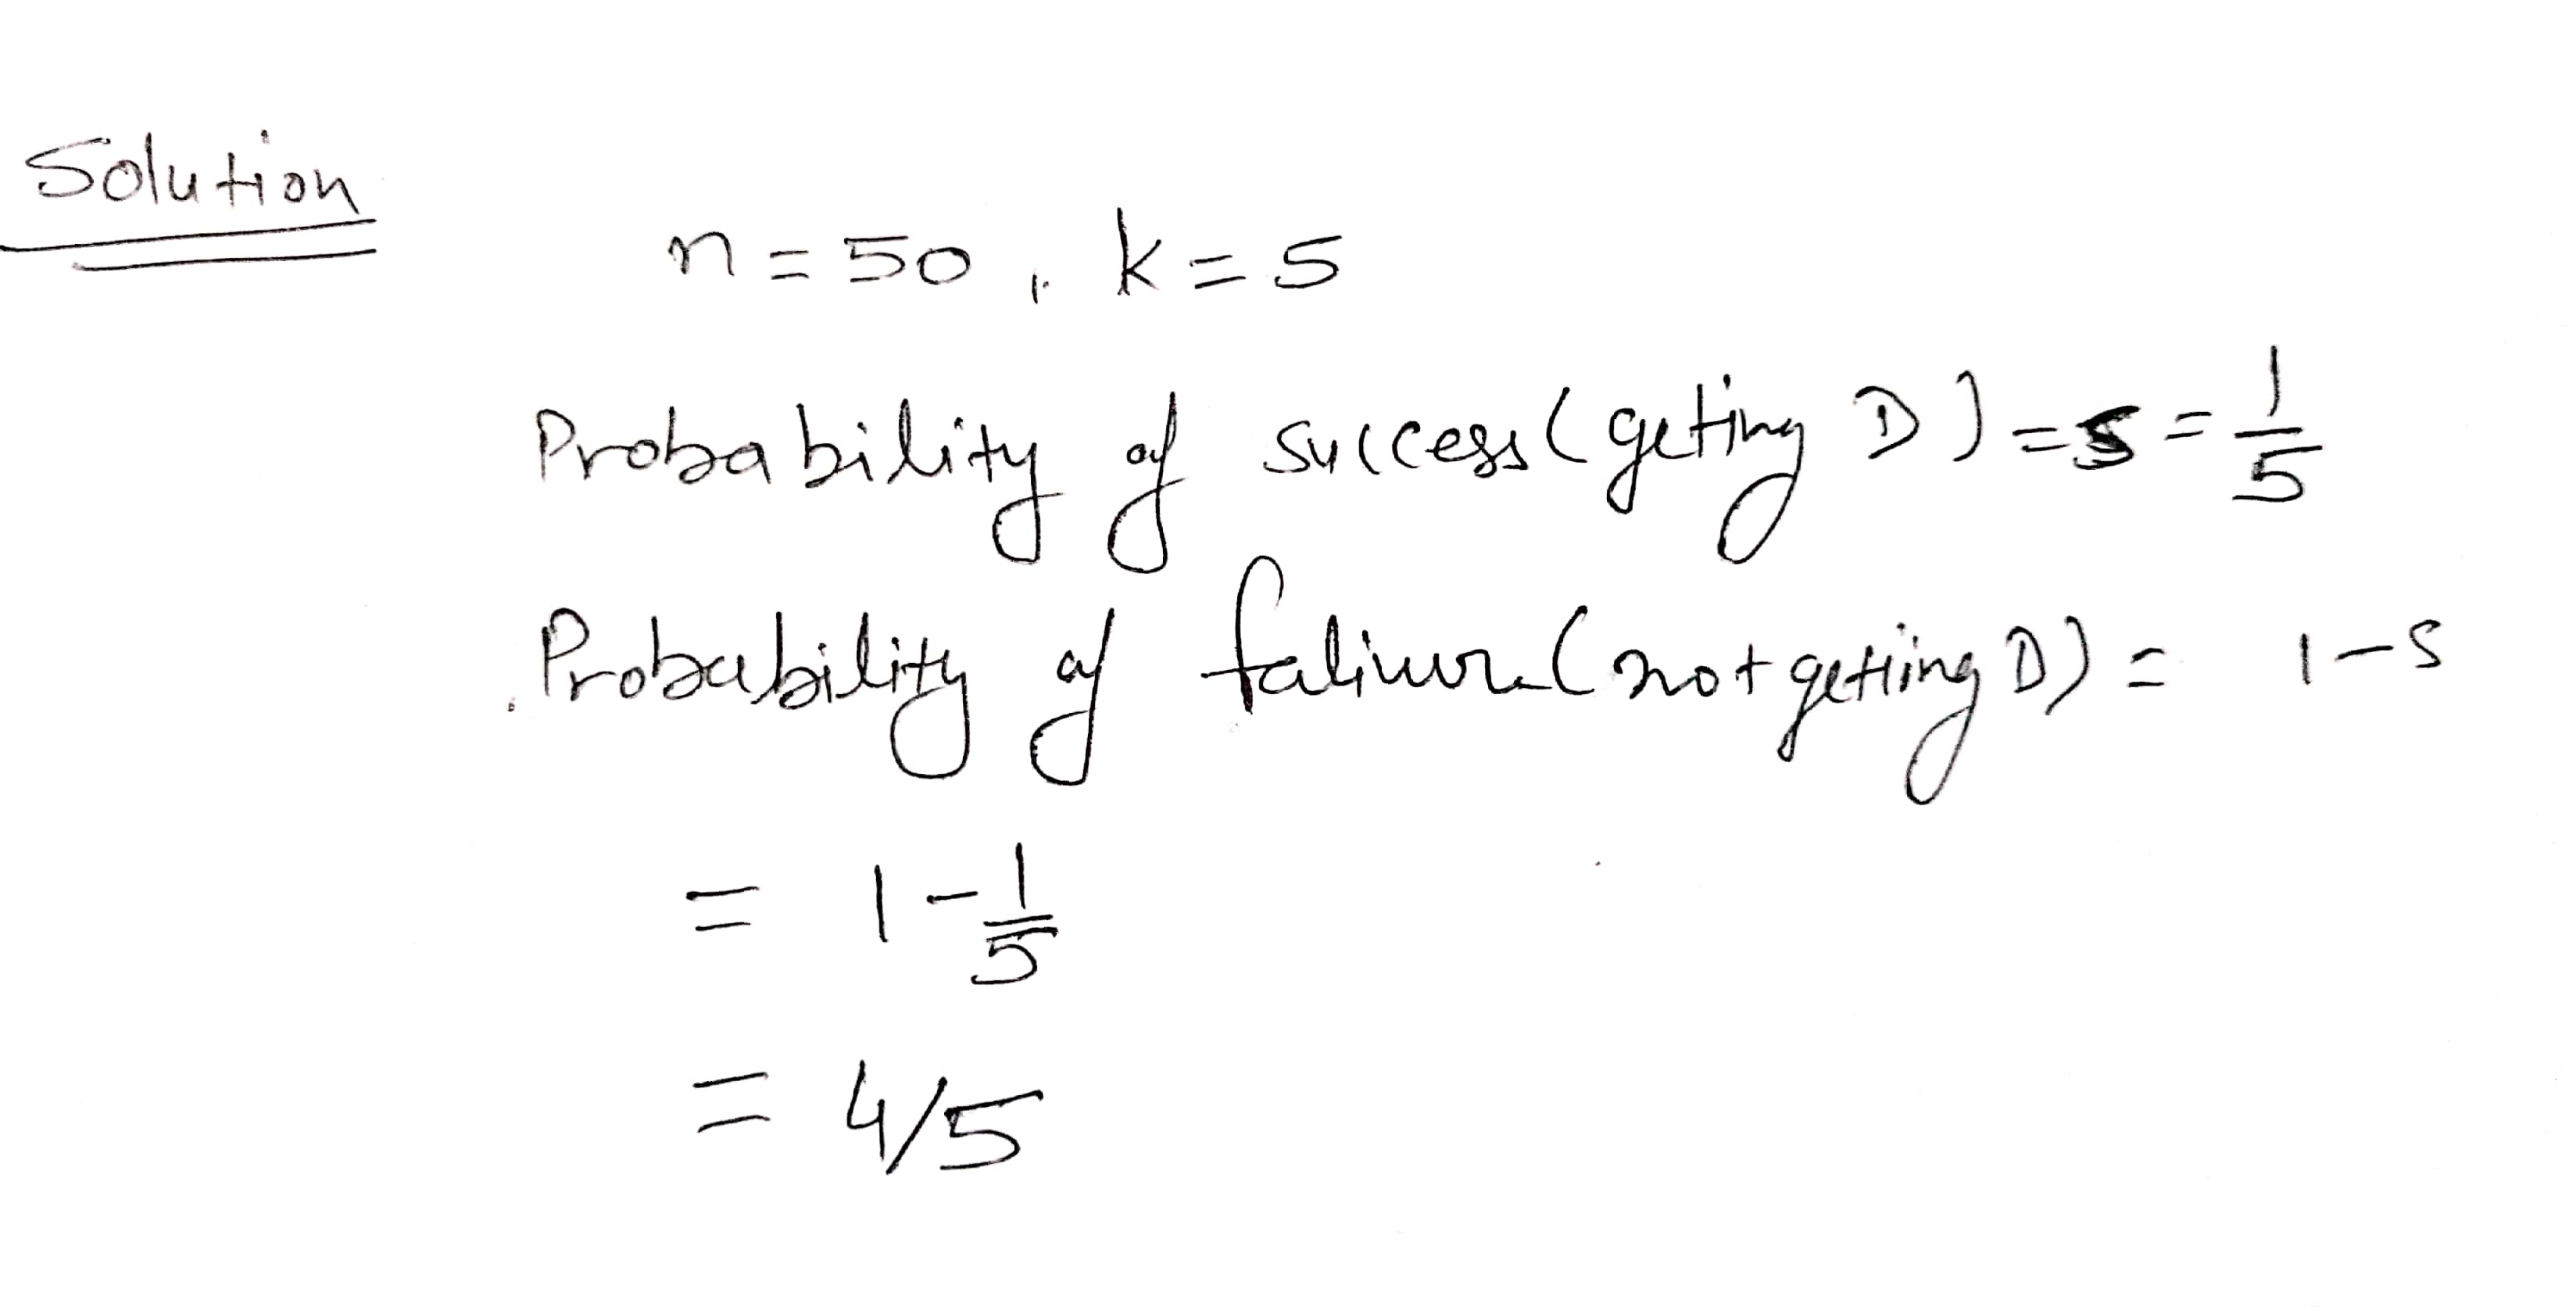 Solution
n = 50, k = 5
Probability of success (geting D) = s = 1/5
Probability of faliure (not getting D) = 1-s
= 1 - 1/5
= 4/5